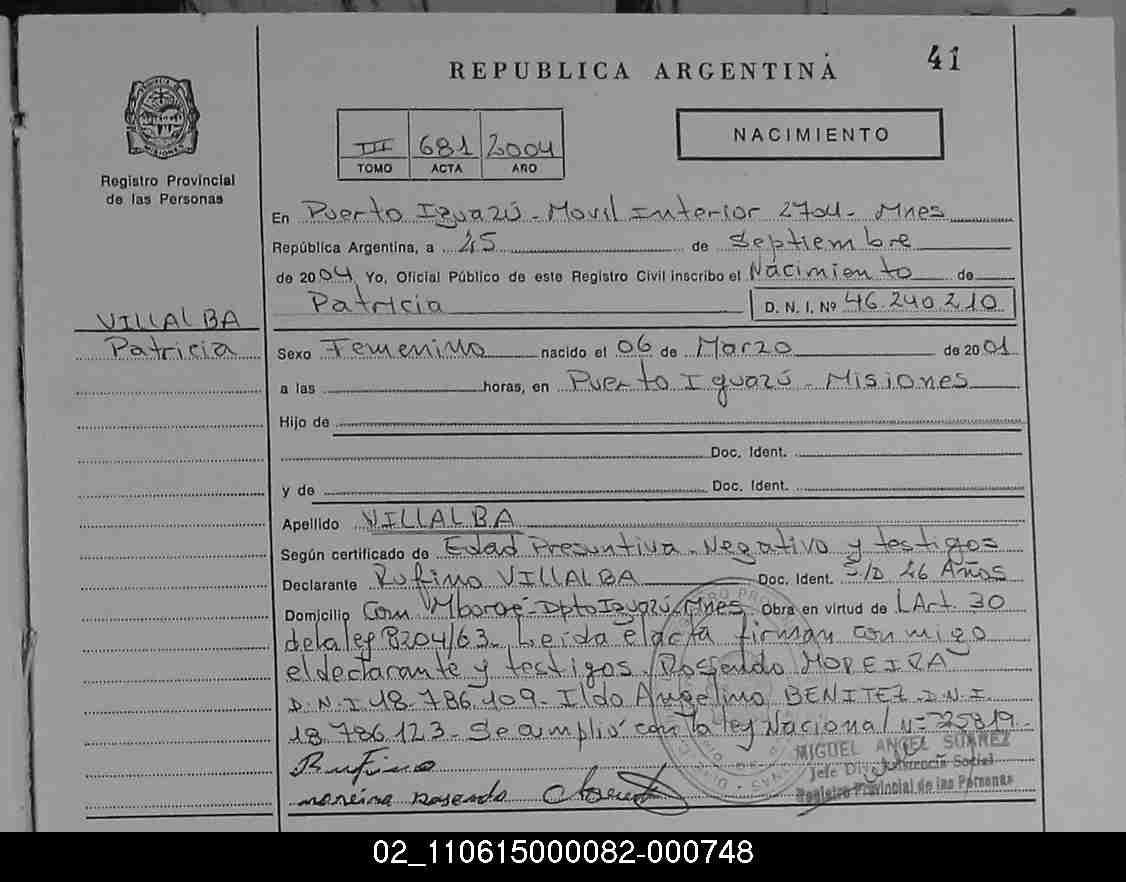 41
REPUBLICA ARGENTINA
III 681 2004
TOMO ACTA AÑO
NACIMIENTO
MISIONES
Registro Provincial
de las Personas
En Puerto Iguazú - Movil Interior 2704 - Mnes
República Argentina, a 25 de Septiembre
de 2004 Yo, Oficial Público de este Registro Civil inscribo el Nacimiento de
Patricia D. N. I. Nº 46.240.210
VILLALBA
Patricia
Sexo Femenino nacido el 06 de Marzo de 2001
a las horas, en Puerto Iguazú - Misiones
Hijo de
Doc. Ident.
y de Doc. Ident.
Apellido VILLALBA
Según certificado de Edad Presuntiva - Negativo y testigos
Declarante Rufino VILLALBA Doc. Ident. S/D 26 Años
Domicilio Com Mbororé - Dpto Iguazú - Mnes Obra en virtud de LArt. 30
de la ley 8204/63 - Leida el acta firman conmigo
el declarante y testigos. Rossendo MOREIRA
D.N.I 18.786.109 - Ildo Angelino BENITEZ - D.N.I.
18.786.123 - Se cumplió con la ley Nacional Nº 25819 -
Rufino
moreira Rosendo
MIGUEL ANGEL SUAREZ
Jefe Div. Social
Registro Provincial de las Personas
02_110615000082-000748